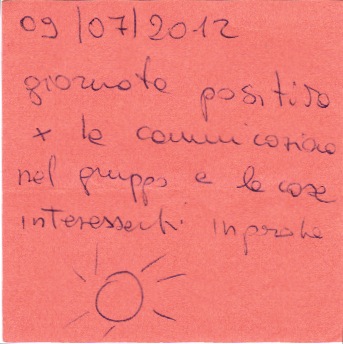 09/07/2012
giornata positiva
x la comunicazione
nel gruppo e le cose
interessanti imparate